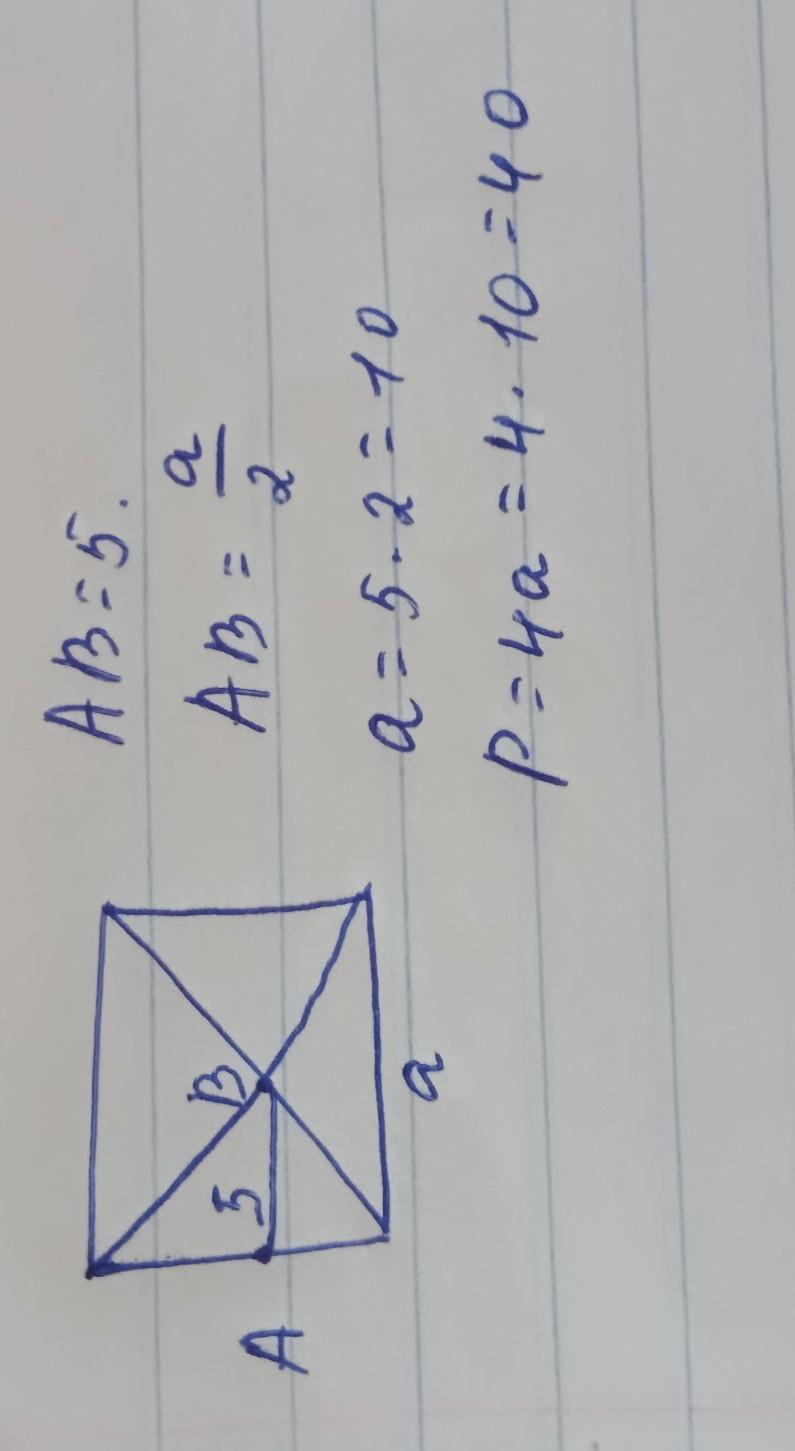 AB=5.
AB = a/2
a = 5 · 2 = 10
P = 4a = 4 · 10 = 40
A
5
B
a